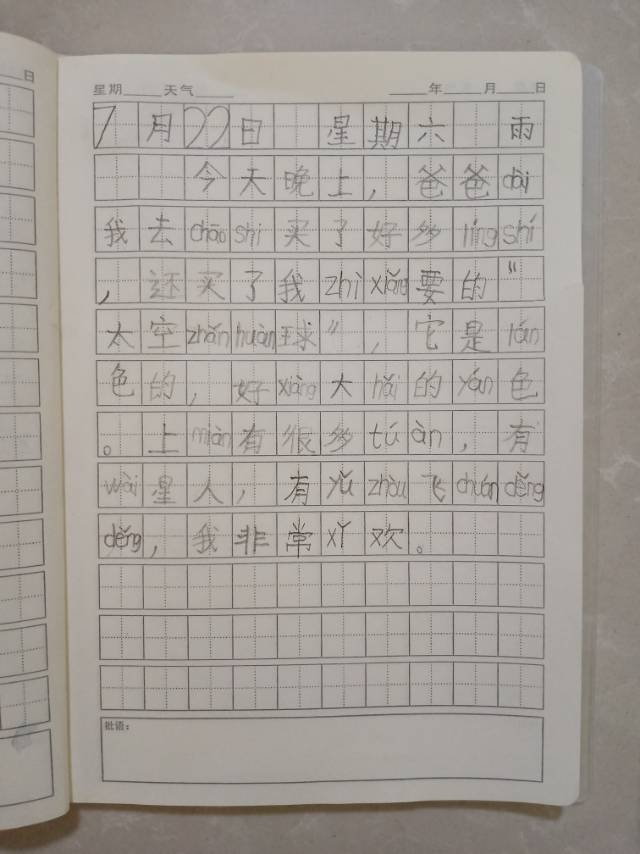 日
星期 天气 年 月 日
7月22日 星期六 雨
今天晚上，爸爸dài
我去chāo shì买了好多líng shí
，还买了我zhǐ xiǎng要的“
太空zhǎn huàn球”，它是lán
色的，好xiàng大hǎi的yán色
。上miàn有很多tú àn，有
wài星人，有yǔ zhòu飞chuán děng
děng，我非常xǐ欢。
批语：